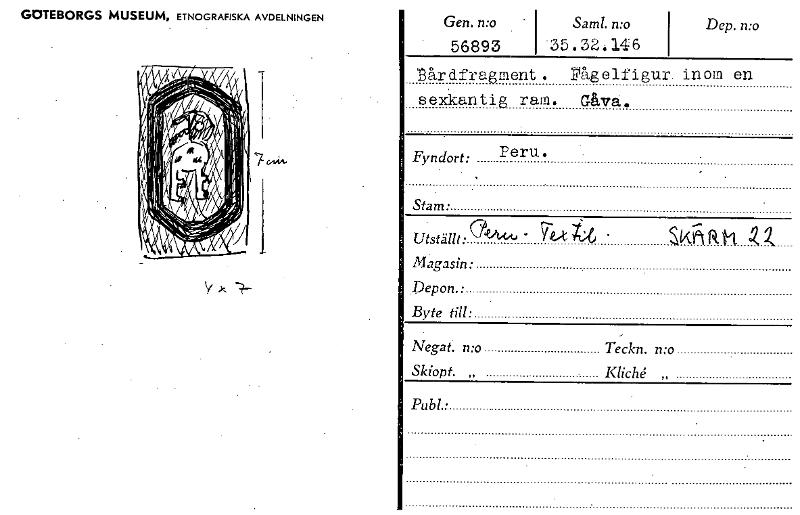 GÖTEBORGS MUSEUM, ETNOGRAFISKA AVDELNINGEN
7 cm
4 x 7
Gen. n:o Saml. n:o Dep. n:o
56893 35.32.146
Bårdfragment. Fågelfigur inom en
sexkantig ram. Gåva.
Fyndort: Peru.
Stam:
Utställt: Peru - Textil. SKÄRM 22
Magasin:
Depon.:
Byte till:
Negat. n:o Teckn. n:o
Skiopt. „ Kliché „
Publ.: